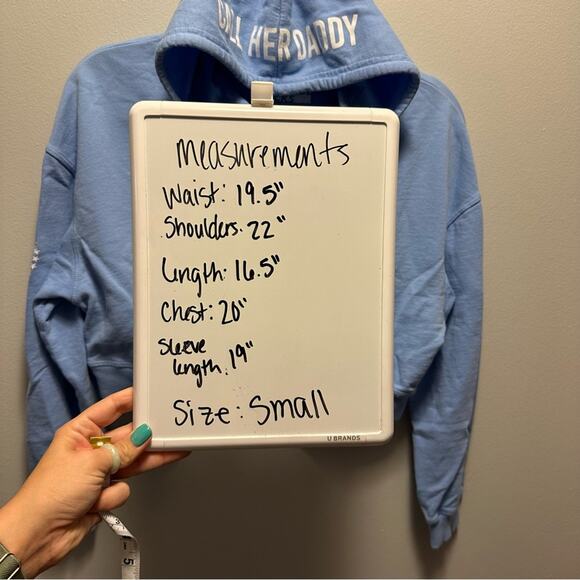 CALL HER DADDY
Measurements
Waist: 19.5"
Shoulders: 22"
Length: 16.5"
Chest: 20"
Sleeve
length: 19"
Size: Small
U BRANDS
5